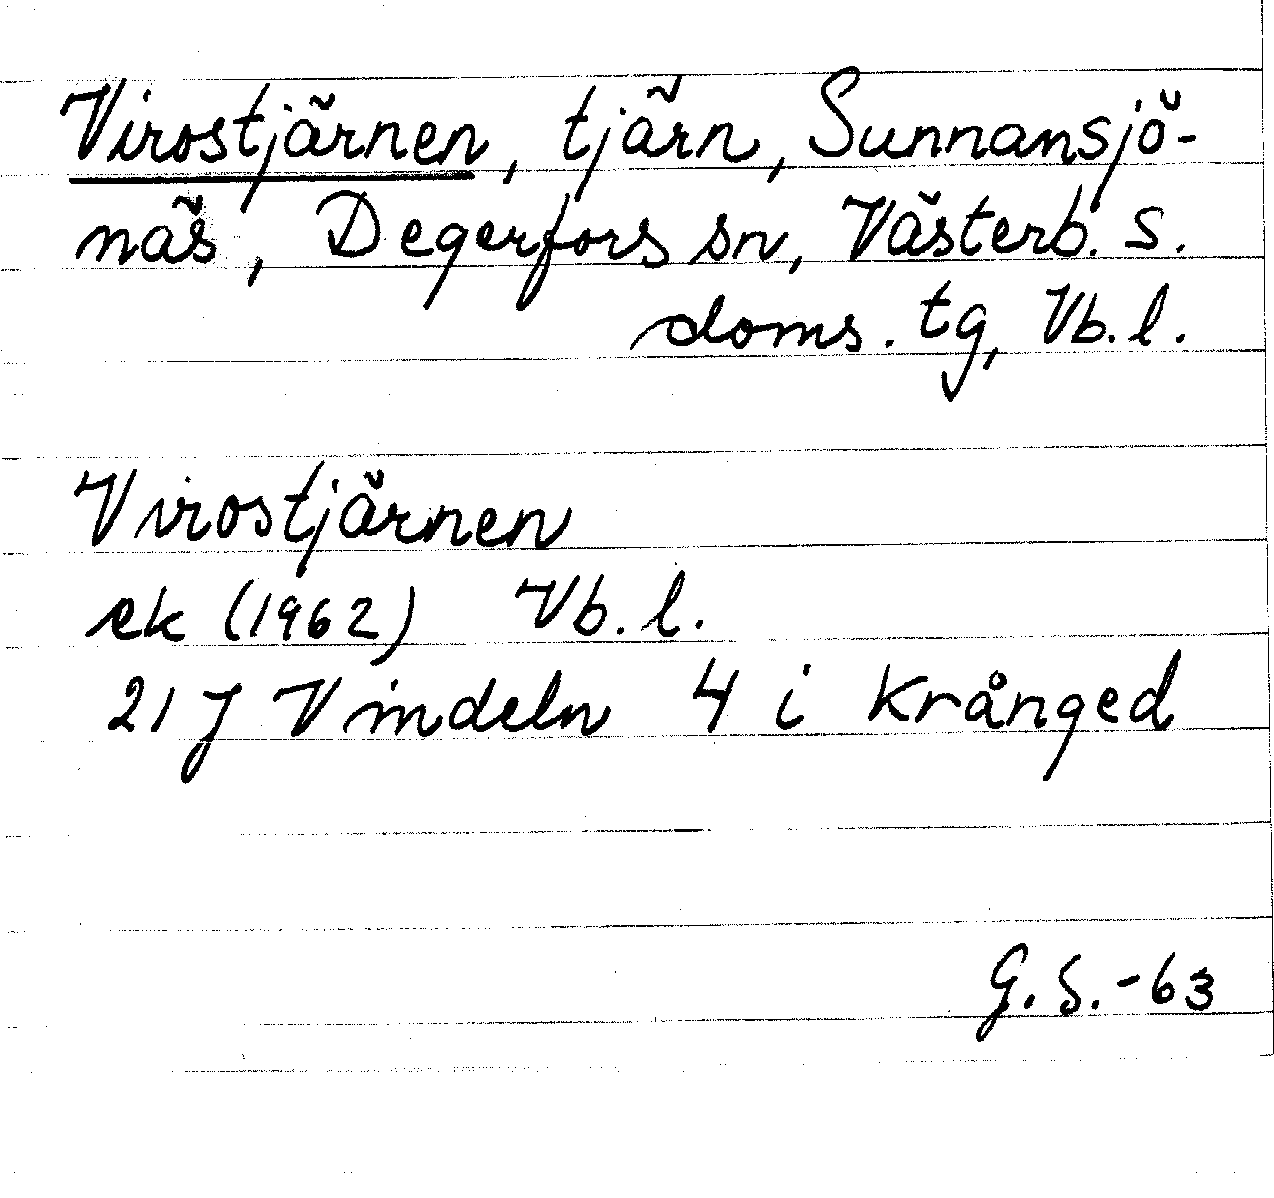 Virostjärnen, tjärn, Sunnansjö-
näs, Degerfors sn, Västerb. s.
doms. tg, Vb. l.
Virostjärnen
ek (1962) Vb. l.
21 J Vindeln 4 i Krånged
G. S. - 63